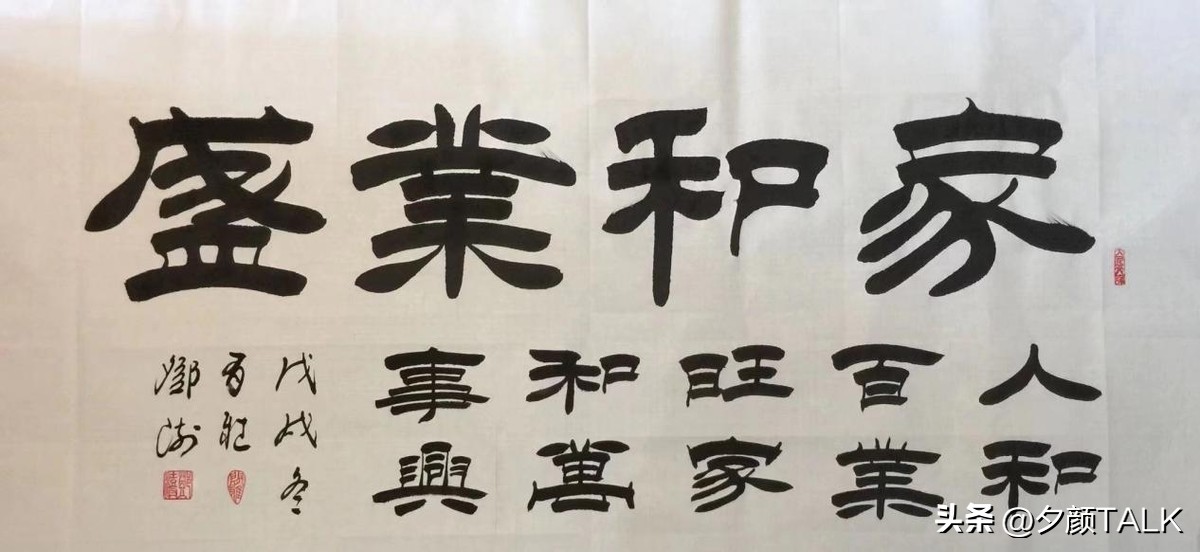 家和業盛
人和
百業
旺家
和萬
事興
戊戌冬
头条 @夕颜TALK